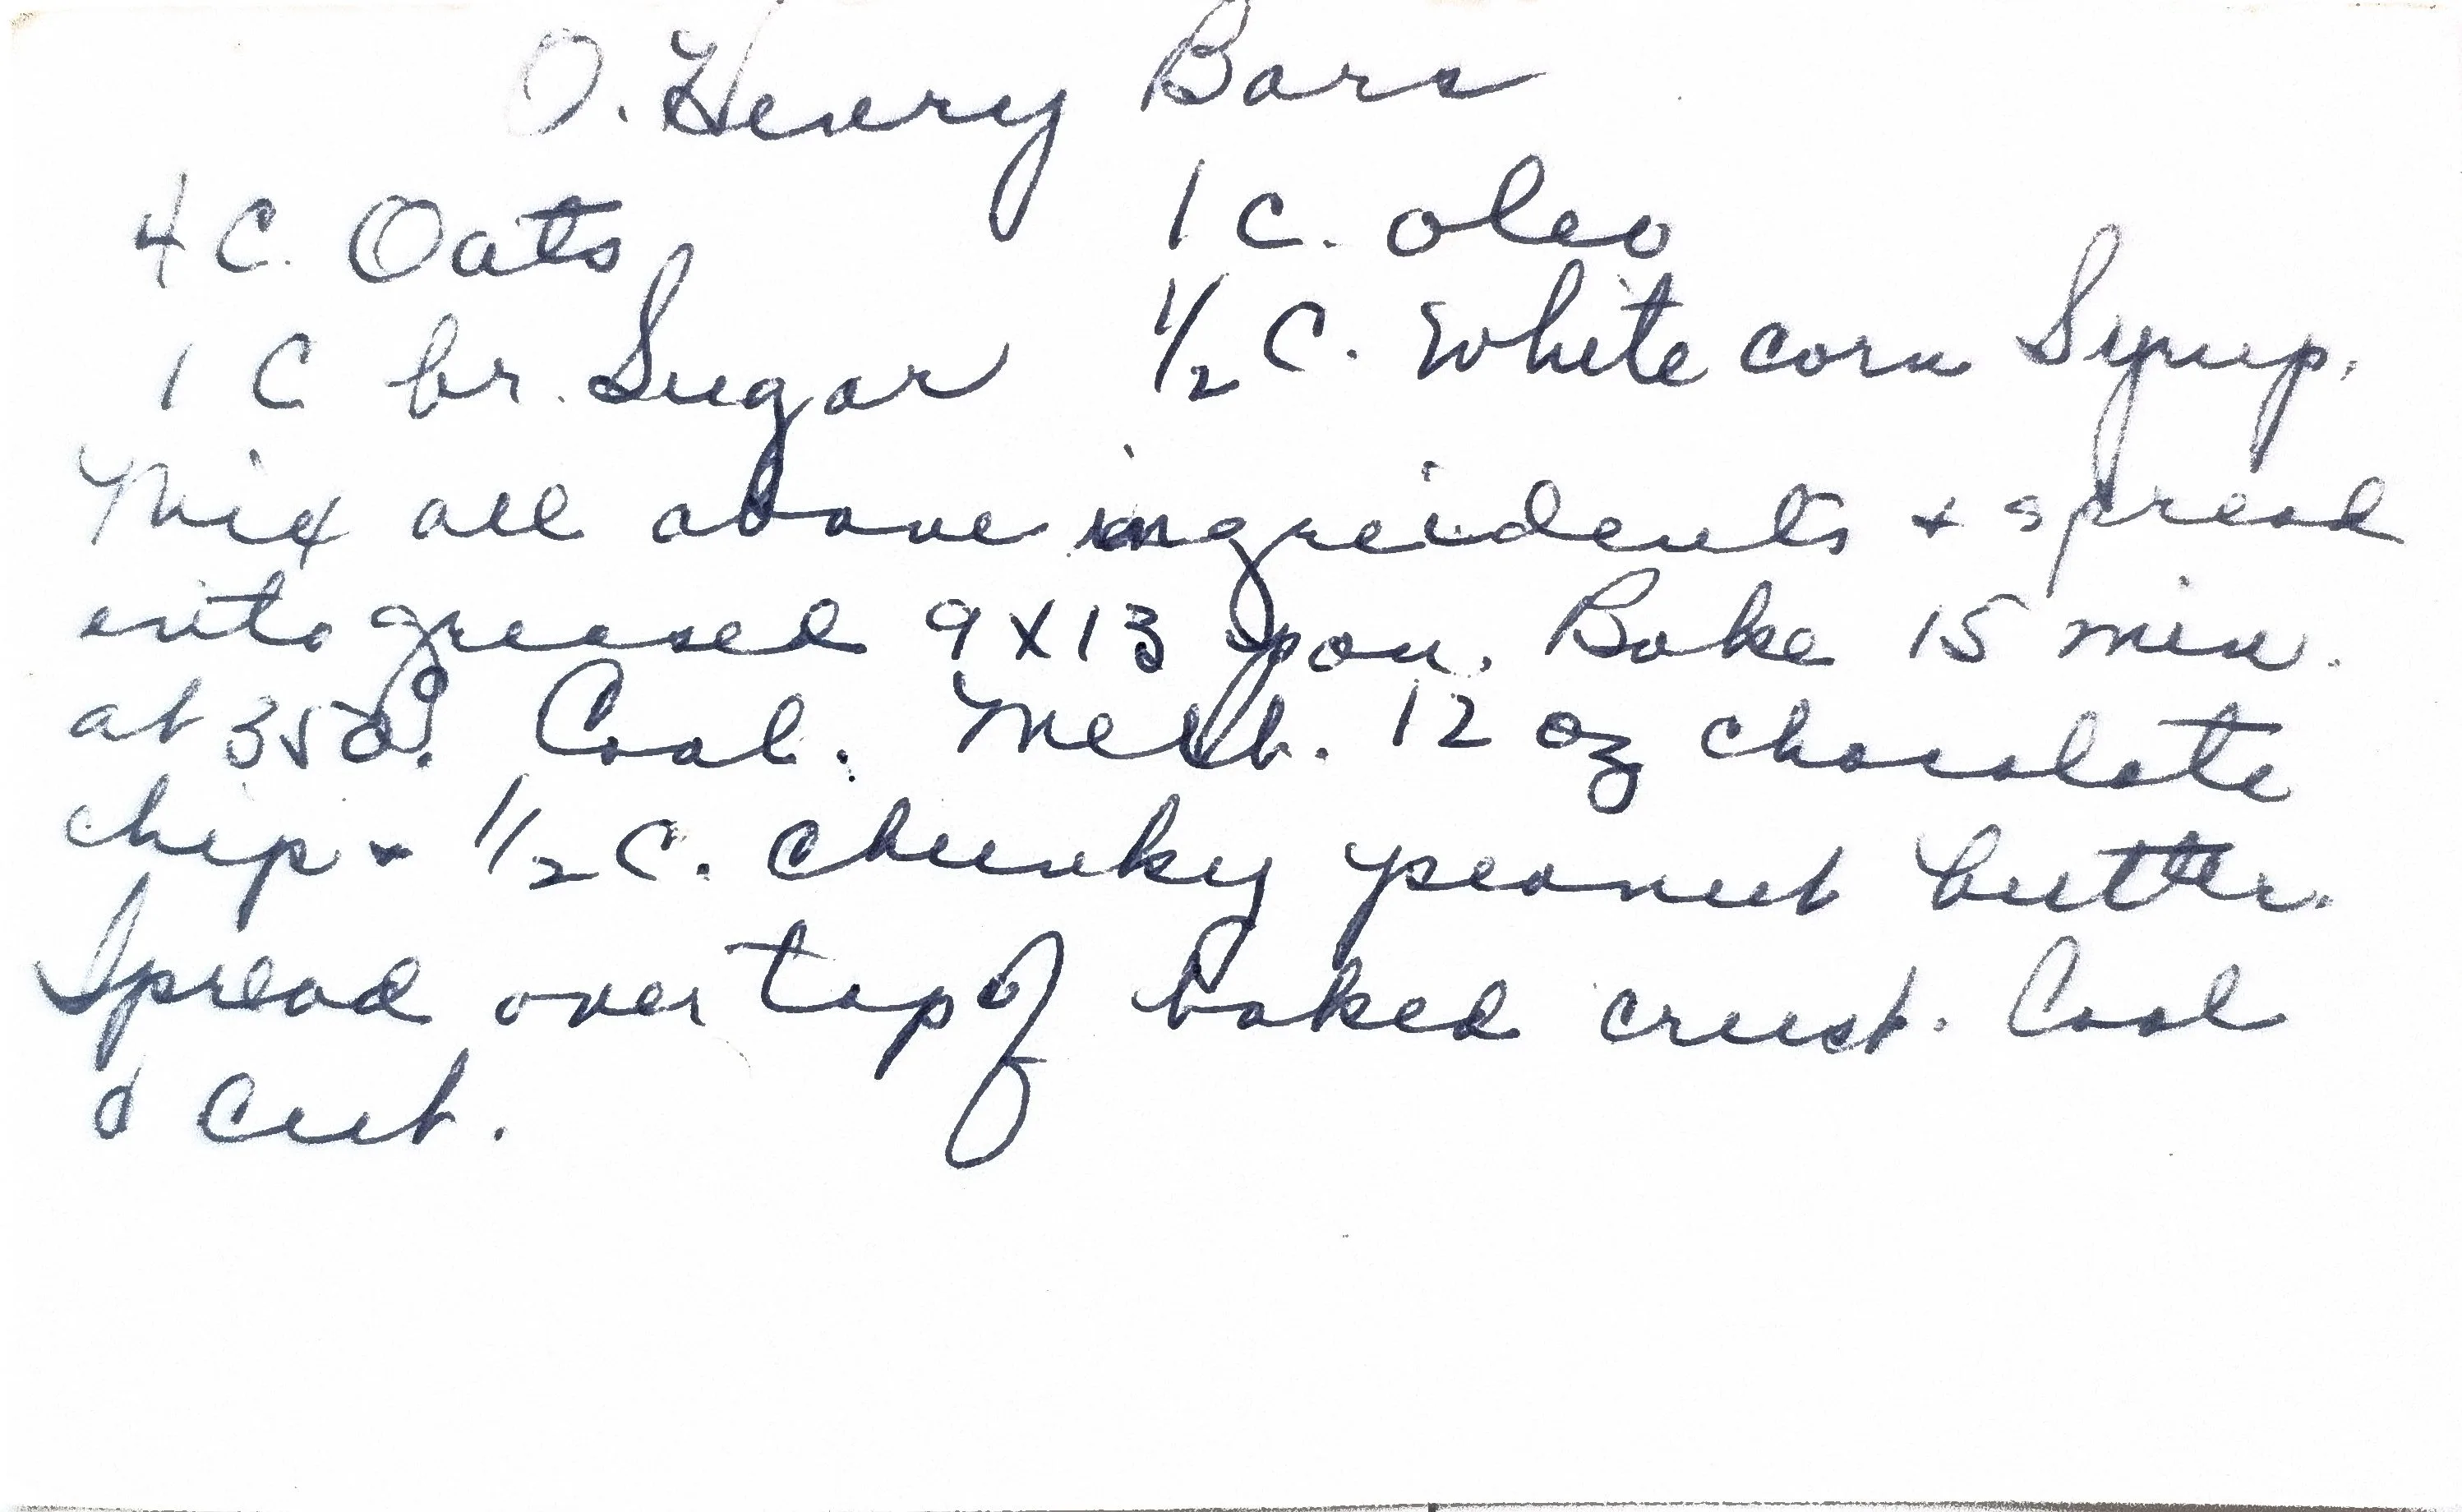 O. Henry Bars
4 C. Oats 1 C. oleo
1 C br. Sugar 1/2 C. White corn Syrup.
Mix all above ingreidents + spread
into greased 9X13 pan. Bake 15 min.
at 350°. Cool. Melt. 12 oz chocolate
chip + 1/2 C. chunky peanut butter.
Spread over top of baked crust. Cool
& Cut.